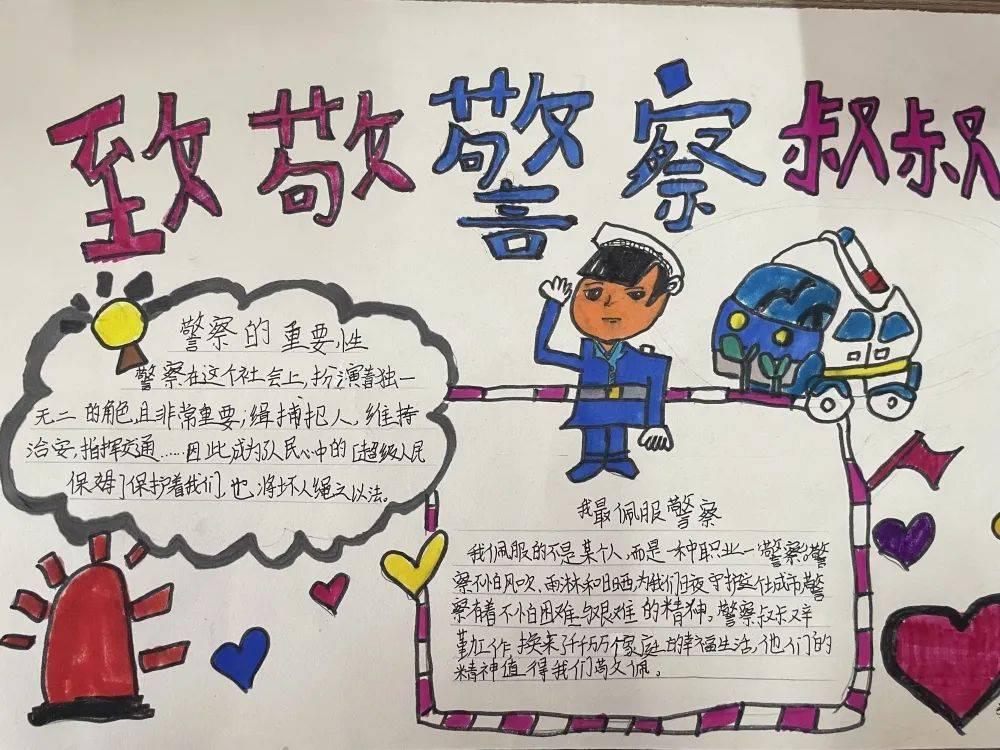 致敬警察叔叔
警察的重要性
警察在这个社会上,扮演着独一
无二的角色,且非常重要;缉捕犯人,维持
治安,指挥交通……因此成为了人民心中的[超级人民
保姆]保护着我们,也将坏人绳之以法。
我最佩服警察
我佩服的不是某个人,而是一种职业—“警察”。警
察不怕风吹、雨淋和日晒为我们日夜守护这什城市警
察有着不怕困难与艰难的精神。警察叔叔辛
勤工作换来了千千万万个家庭的幸福生活,他们的
精神值得我们敬佩。